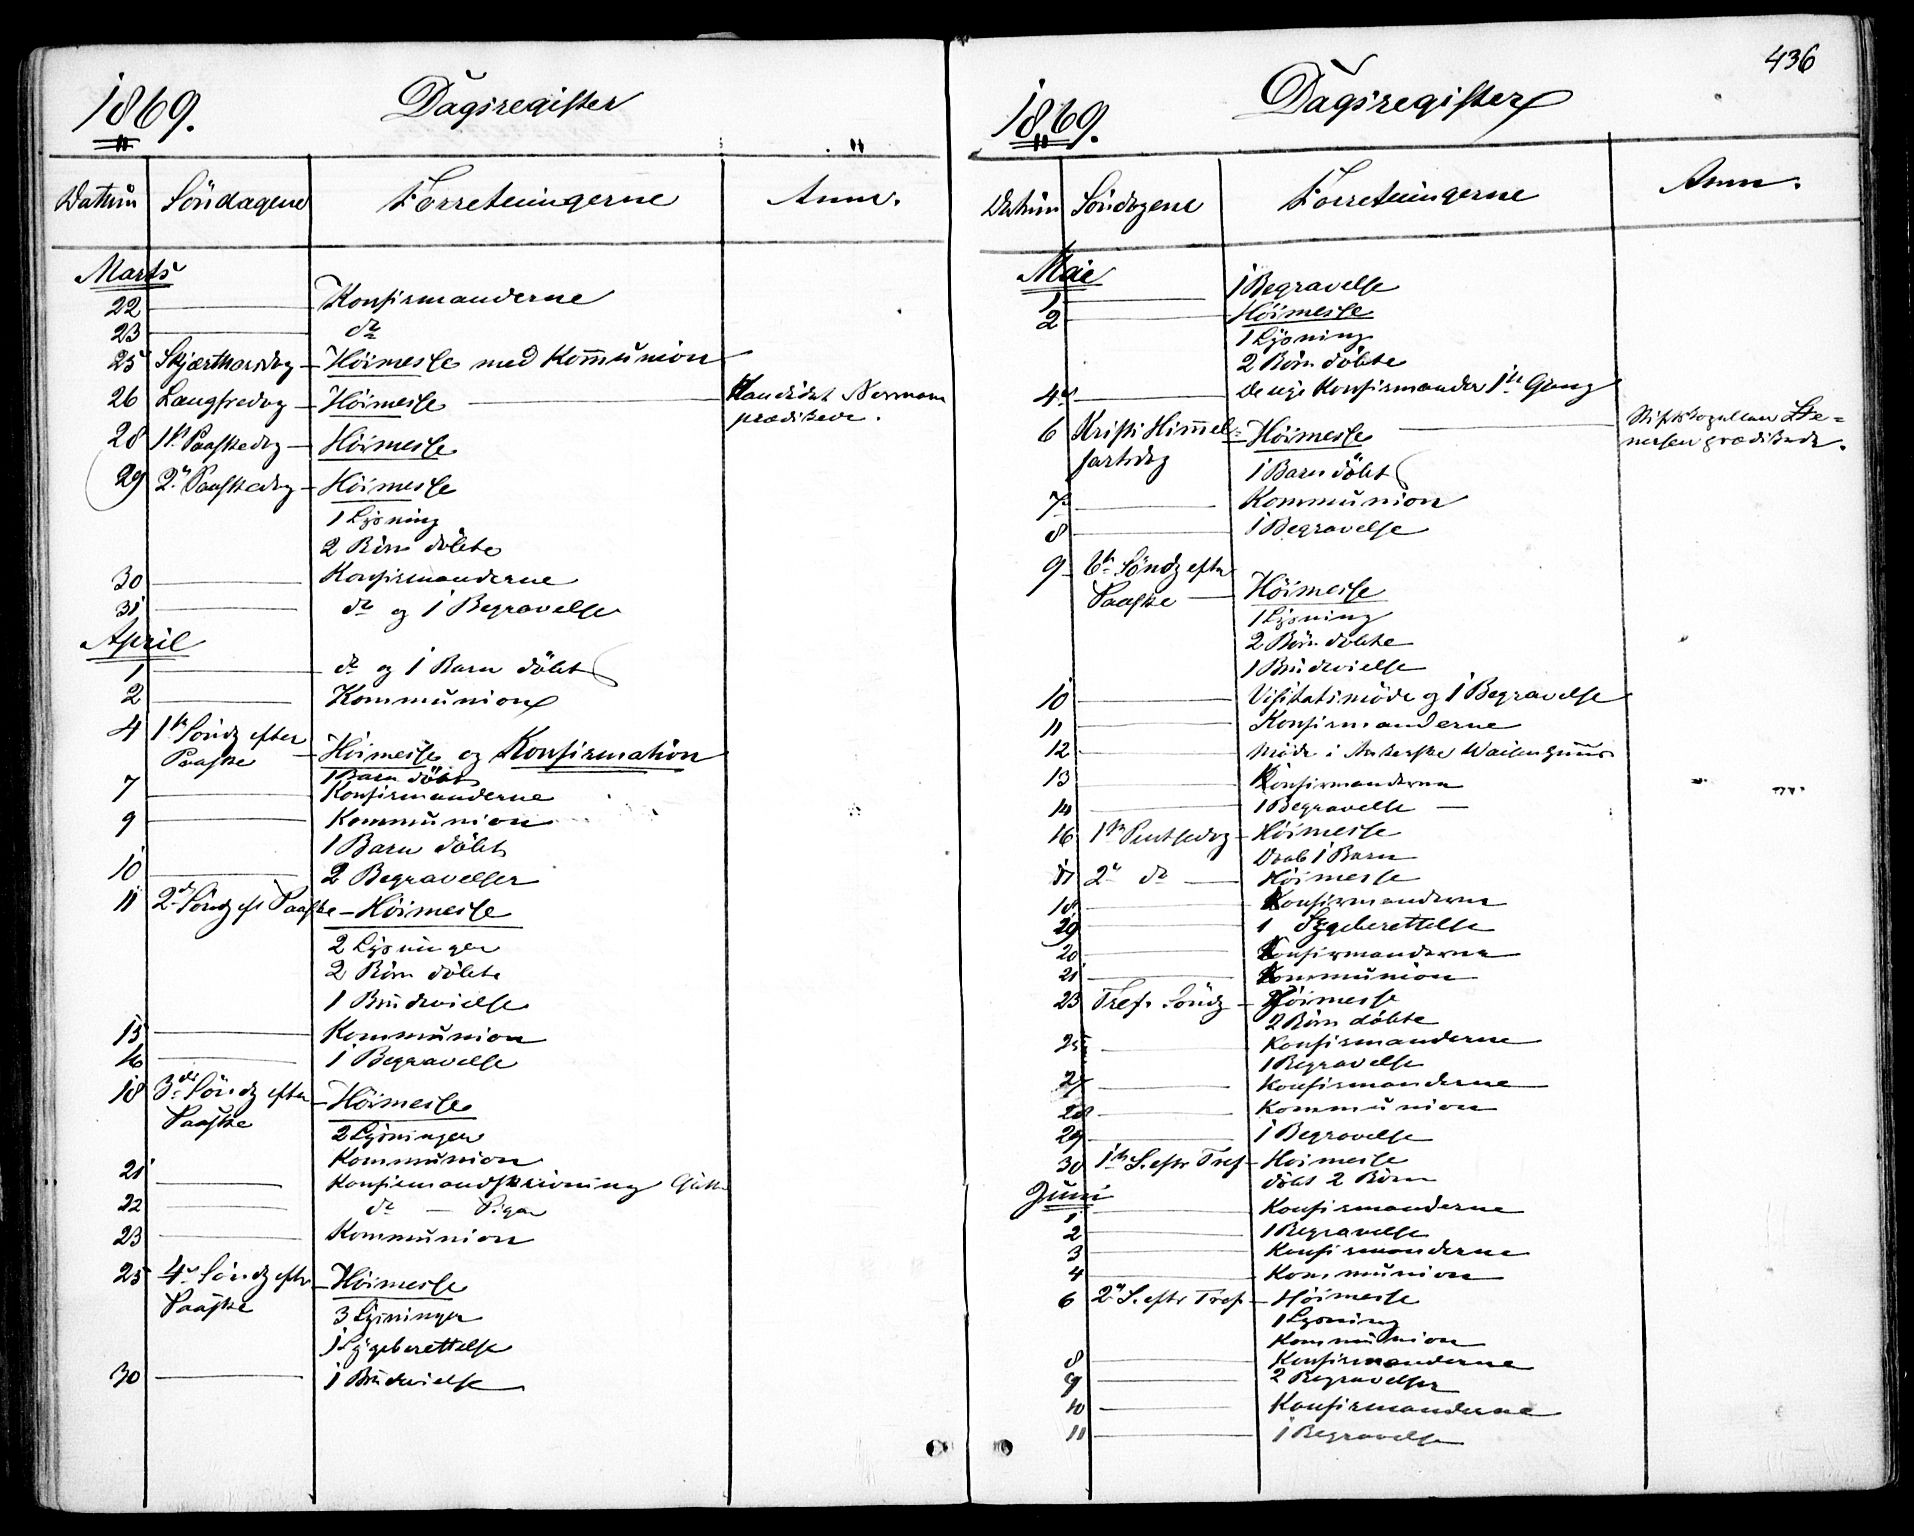 1869. Dagsregister
Datum Söndagene Forretningerne Anm.
Marts
22 Konfirmanderne
23 do
25 Skjærthorsdag - Höimesse med Kommunion
26 Langfredag - Höimesse Kandidat Normann
prædikede.
28 1st Paaskedag - Höimesse
29 2n Paaskedag - Höimesse
1 Lysning
2 Börn döbte
30 Konfirmanderne
31 do og 1 Begravelse
April
1 do og 1 Barn döbt
2 Kommunion
4 1ste Söndg efter
Paaske - Höimesse og Konfirmation
1 Barn döbt
7 Konfirmanderne
9 Kommunion
1 Barn döbt
10 2 Begravelser
11 2den Söndg eft Paaske - Höimesse
2 Lysninger
2 Börn döbte
1 Brudevielse
15 Kommunion
16 1 Begravelse
18 3die Söndg efter - Höimesse
Paaske
2 Lysninger
Kommunion
21 Konfirmandskrivning Gutter
22 do - Piger
23 Kommunion
25 4de Söndg eftr - Höimesse
Paaske
3 Lysninger
1 Sygeberettelse
30 1 Brudevielse
436
1869. Dagsregister
Datum Söndagene Forretningerne Anm.
Mai
1 1 Begravelse
2 Höimesse
1 Lysning
2 Börn döbte
4 De nye Konfirmander 1ste Gang
6 Kristi Himmel- Höimesse Stiftskapellan Ste=
fartsdag nersen prædikede.
1 Barn döbt
7 Kommunion
8 1 Begravelse
9 6te Söndg efter
Paaske - Höimesse
1 Lysning
2 Börn döbte
1 Brudevielse
10 Visitatsmöde og 1 Begravelse
11 Konfirmanderne
12 Möde i Ankerske Waisenhuus
13 Konfirmanderne
14 1 Begravelse
16 1ste Pintsedag - Höimesse
Döbt 1 Barn
17 2n do - Höimesse
18 Konfirmanderne
19 1 Sygeberettelse
20 Konfirmanderne
21 Kommunion
23 Tref. Söndg - Höimesse
2 Börn döbte
25 Konfirmanderne
1 Begravelse
27 Konfirmanderne
28 Kommunion
29 1 Begravelse
30 1ste S. eftr Tref - Höimesse
döbt 2 Börn
Juni
1 Konfirmanderne
2 1 Begravelse
3 Konfirmanderne
4 Kommunion
6 2n S. eftr Tref - Höimesse
1 Lysning
Kommunion
8 Konfirmanderne
9 2 Begravelser
10 Konfirmanderne
11 1 Begravelse